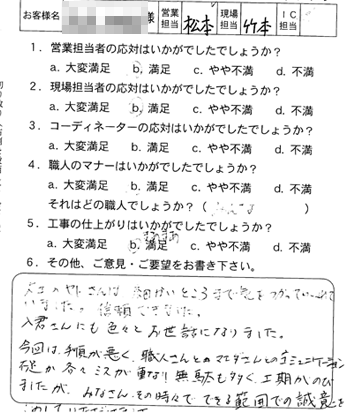 お客様名 様 営業担当 松本 現場担当 竹本 IC担当
1．営業担当者の応対はいかがでしたでしょうか？
a. 大変満足 b. 満足 c. やや不満 d. 不満
2．現場担当者の応対はいかがでしたでしょうか？
a. 大変満足 b. 満足 c. やや不満 d. 不満
3．コーディネーターの応対はいかがでしたでしょうか？
a. 大変満足 b. 満足 c. やや不満 d. 不満
4．職人のマナーはいかがでしたでしょうか？
a. 大変満足 b. 満足 c. やや不満 d. 不満
それはどの職人でしょうか？（みんな）
5．工事の仕上がりはいかがでしたでしょうか？
まあまあ
a. 大変満足 b. 満足 c. やや不満 d. 不満
6．その他、ご意見・ご要望をお書き下さい。
さんは 細かいところまで気をつかって
いました。信頼できました。
さんにも色々とお世話になりました。
今回は、 が悪く、職人さんとの とのコミュニケーション
不足か各々ミスが重なり無駄も多く、工期がのび
ましたが、みなさん、その時々でできる範囲での誠意を